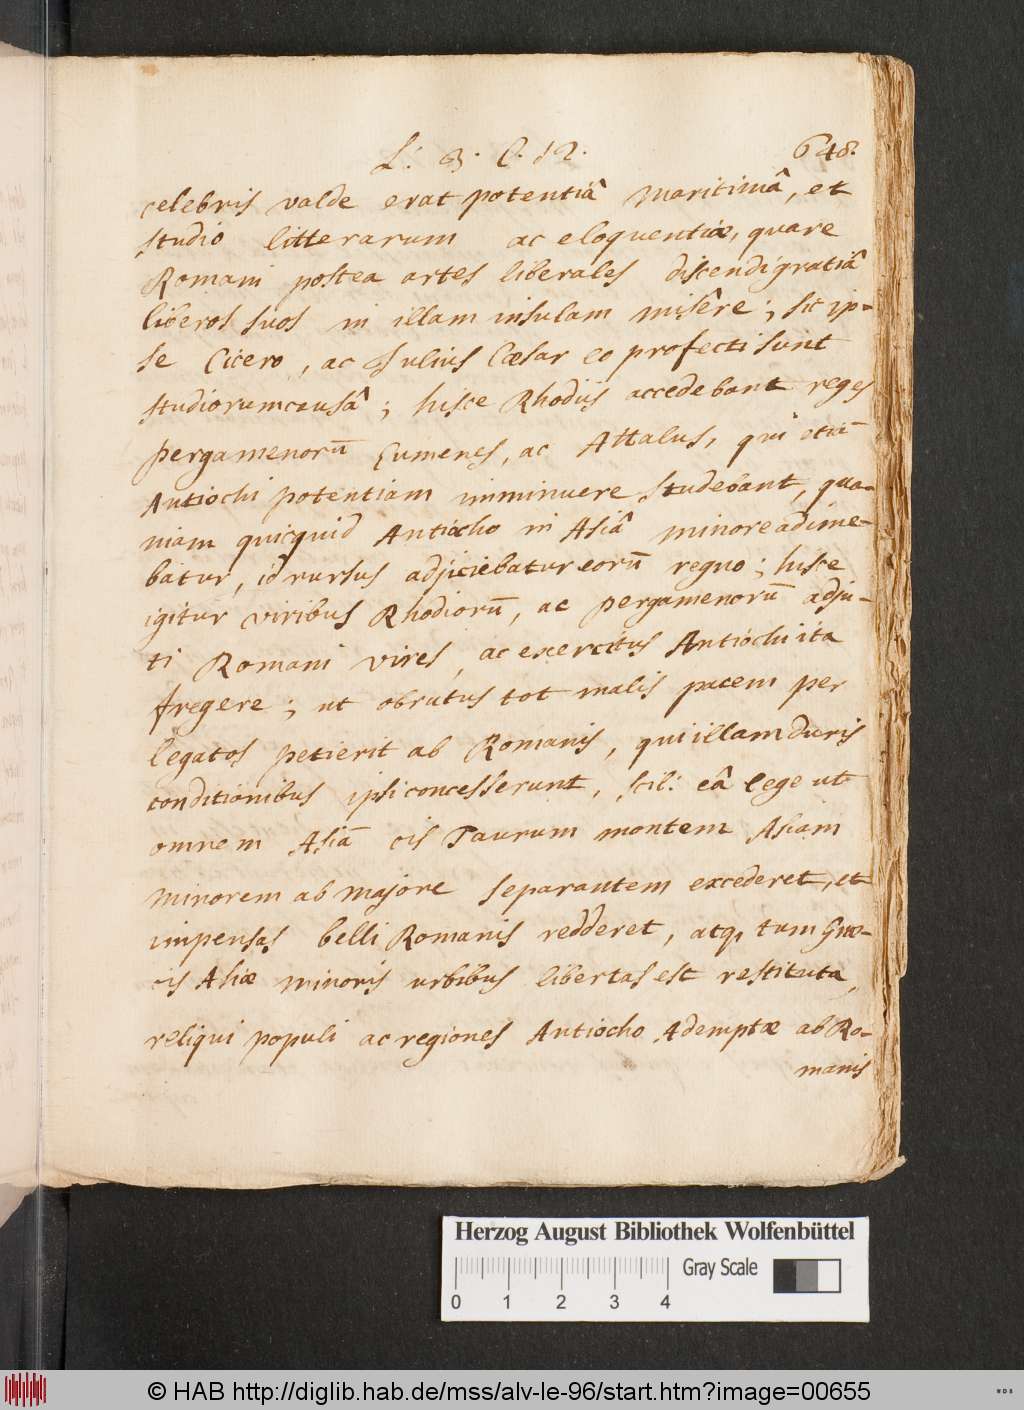 L: 3. C. 12. 648.
celebris valde erat potentiâ maritimâ, et
studio litterarum ac eloquentiæ, quare
Romani postea artes liberales discendi gratiâ
liberos suos in illam insulam misêre; sic ip-
se Cicero, ac Julius Cæsar eo profecti sunt
studiorum causâ; hisce Rhodiis accedebant reges
pergamenorū Eumenes, ac Attalus, qui etiā
Antiochi potentiam imminuere studebant, quo-
niam quicquid Antiocho in Asiâ minore adime-
batur, id rursus adjiciebatur eorū regno; hisce
igitur viribus Rhodiorū, ac pergamenorū adju-
ti Romani vires, ac exercitus Antiochi ita
fregere; ut obrutus tot malis pacem per
legatos petierit ab Romanis, qui illam duris
conditionibus ipsi concesserunt, scil: eâ lege ut
omnem Asiā cis Taurum montem Asiam
minorem ab majore separantem excederet, et
impensas belli Romanis redderet, atq, tum Græ-
cis Asiæ minoris urbibus libertas est restituta,
reliqui populi ac regiones Antiocho Ademptæ ab Ro-
manis
Herzog August Bibliothek Wolfenbüttel
Gray Scale
0 1 2 3 4
© HAB http://diglib.hab.de/mss/alv-le-96/start.htm?image=00655